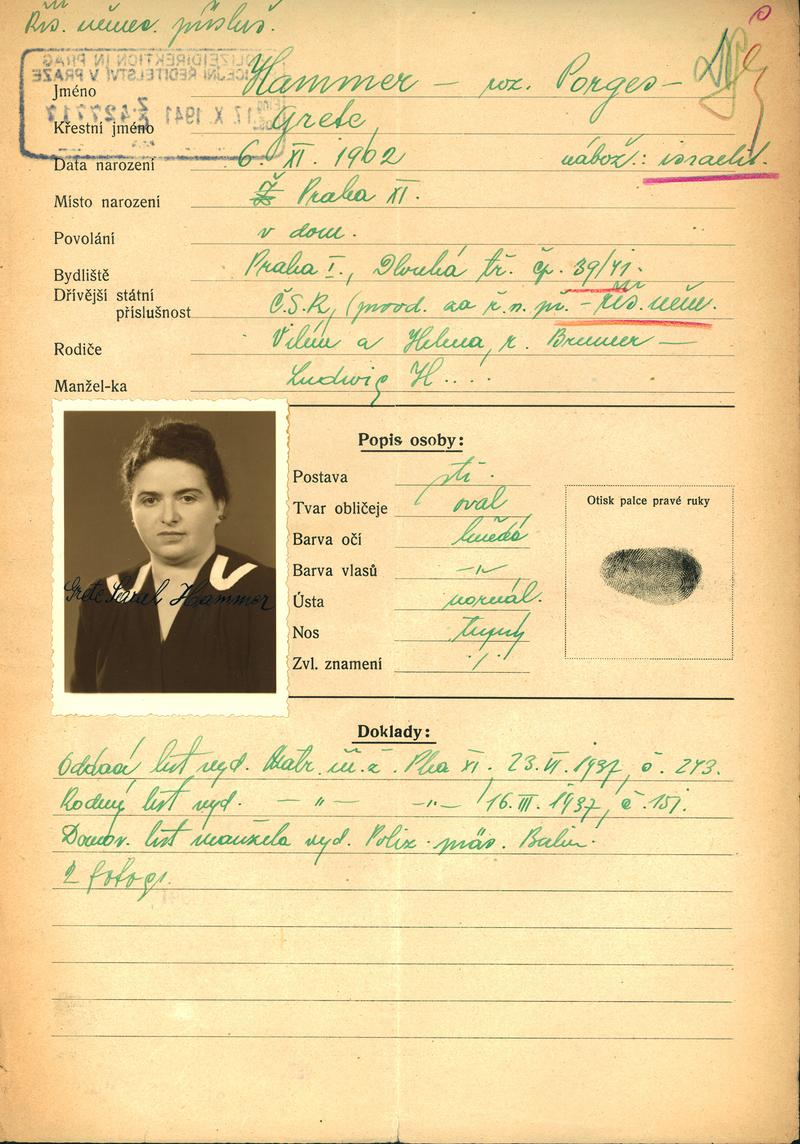 Řís. němec. přísluš.
POLIZEIDIREKTION IN PRAG
POLICEJNÍ ŘEDITELSTVÍ V PRAZE
17. X. 1941
Jméno Hammer — roz. Porges —
Křestní jméno Grete
Data narození 6. XI. 1902 nábož: israelit.
Místo narození Ž Praha XI.
Povolání v dom.
Bydliště Praha I., Dlouhá tř. čp. 39/41.
Dřívější státní
příslušnost Č.S.R, (provd. za ř.n. př. – říš. něm.
Rodiče Vilém a Helena, r. Brunner —
Manžel-ka Ludwig H....
Popis osoby:
Postava stř.
Tvar obličeje oval
Barva očí hnědá
Barva vlasů —"—
Ústa normál.
Nos tupý
Zvl. znamení ./.
Otisk palce pravé ruky
Grete Sarah Hammer
Doklady:
Oddací list vyd. Matr. iú. ž. Pha XI. 23. VI. 1937, č. 243.
Rodný list vyd. — " — —"— 16. III. 1937, č. 151.
Domov. list manžela vyd. Poliz. präs. Berlin.
2 fotogr.